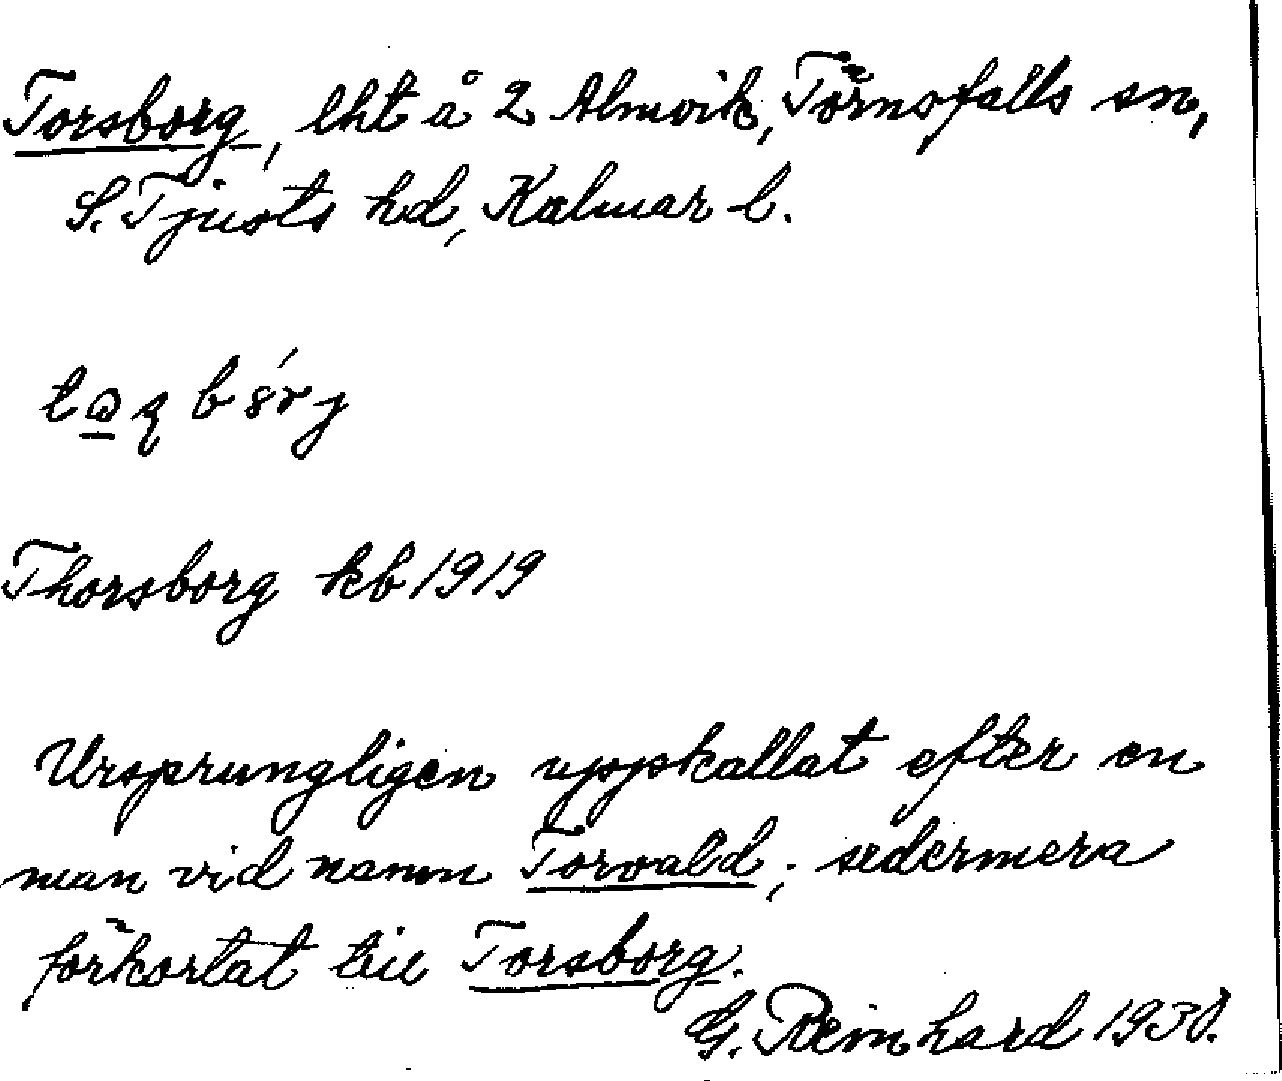 Torsborg, lht å 2 Almvik, Törnsfalls sn,
S. Tjusts hd, Kalmar l.
Thorsborg kb 1919
Ursprungligen uppkallat efter en
man vid namn Torvald; sedermera
förkortat till Torsborg.
G. Reinhard